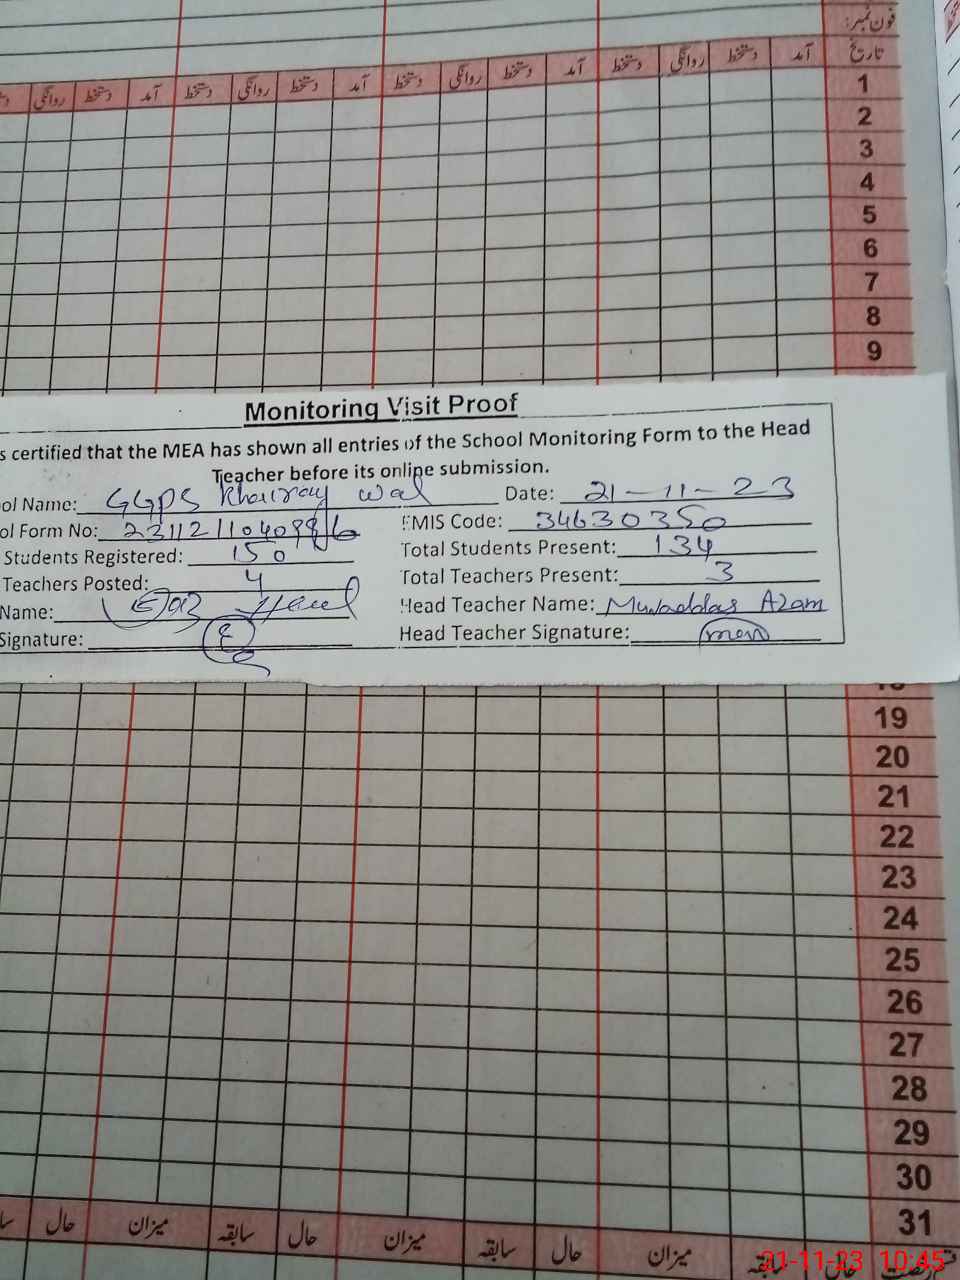 فون نمبر:
تاریخ آمد دستخط روانگی دستخط آمد دستخط روانگی دستخط آمد دستخط روانگی دستخط آمد دستخط روانگی
1
2
3
4
5
6
7
8
9
Monitoring Visit Proof
s certified that the MEA has shown all entries of the School Monitoring Form to the Head
Teacher before its online submission.
ol Name: GGPS Date: 21-11-23
ol Form No: EMIS Code: 34630350
Students Registered: 150 Total Students Present: 134
Teachers Posted: 4 Total Teachers Present: 3
Name: Head Teacher Name: Azam
Signature: Head Teacher Signature:
19
20
21
22
23
24
25
26
27
28
29
30
31
سابقہ حال میزان سابقہ حال میزان سابقہ حال میزان
21-11-23 10:45